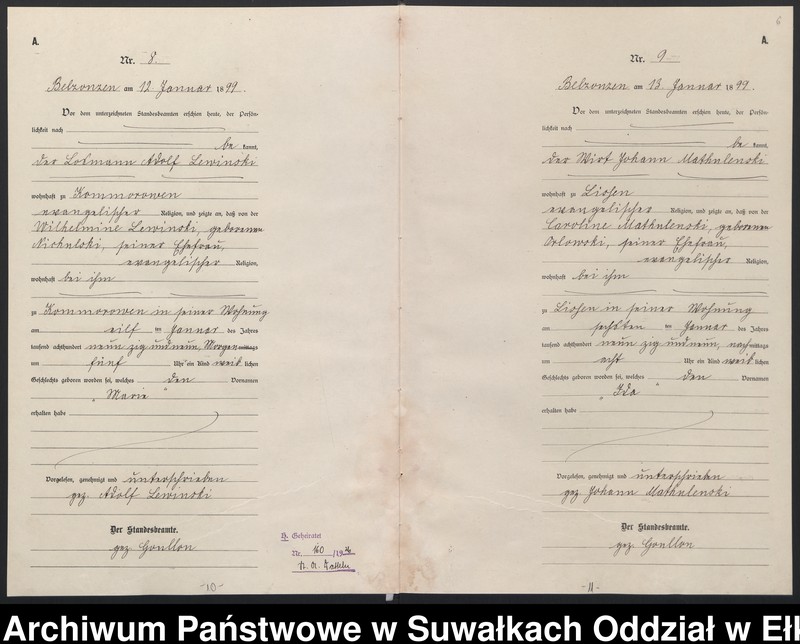 A.
Nr. 8.
Belzonzen am 12 Januar 1899.
Vor dem unterzeichneten Standesbeamten erschien heute, der Persön-
lichkeit nach
be kannt,
der Losmann Adolf Lewinski
wohnhaft zu Kommorowen
evangelischer Religion, und zeigte an, daß von der
Wilhelmine Lewinski, geborenen
seiner Ehefrau,
evangelischer Religion,
wohnhaft bei ihm
zu Kommorowen in seiner Wohnung
am elf im Januar des Jahres
tausend achthundert neun zig und neun, Morgen mittags
um fünf Uhr ein Kind weib lichen
Geschlechts geboren worden sei, welches den Vornamen
"Marie"
erhalten habe
Vorgelesen, genehmigt und unterschrieben
gez. Adolf Lewinski
Der Standesbeamte.
gez Goullon
H. Geheiratet
Nr. 160/19
-10-
6
A.
Nr. 9
Belzonzen am 13. Januar 1899.
Vor dem unterzeichneten Standesbeamten erschien heute, der Persön-
lichkeit nach
be kannt,
der Wirt Johann Mathulenski
wohnhaft zu Liosen
evangelischer Religion, und zeigte an, daß von der
Caroline Mathulenski, geborenen
Orlowski, seiner Ehefrau,
evangelischer Religion,
wohnhaft bei ihm
zu Liosen in seiner Wohnung
am sechsten im Januar des Jahres
tausend achthundert neun zig und neun, nach mittags
um acht Uhr ein Kind weib lichen
Geschlechts geboren worden sei, welches den Vornamen
"Ida"
erhalten habe
Vorgelesen, genehmigt und unterschrieben
gez Johann Mathulenski
Der Standesbeamte.
gez Goullon
-11-
Archiwum Państwowe w Suwałkach Oddział w Eł